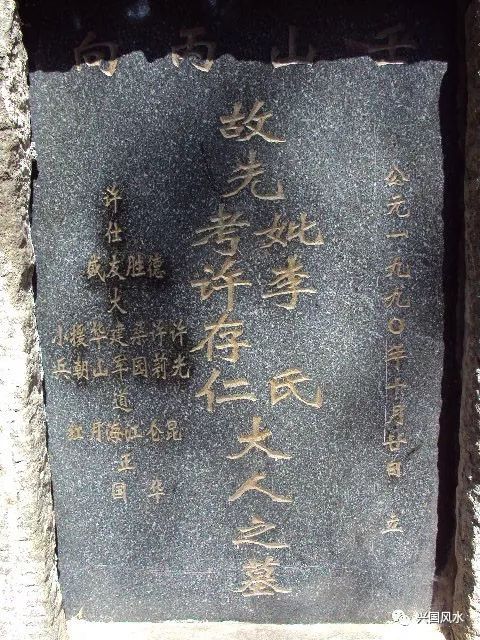 壬山丙向
公元一九九〇年十月廿日 立
故先
妣李氏
考许存仁
大人之墓
许仕
友胜德
许光
许莉
建军
华山
援朝
小兵
道
红月海江仑昆
国 华
兴国风水